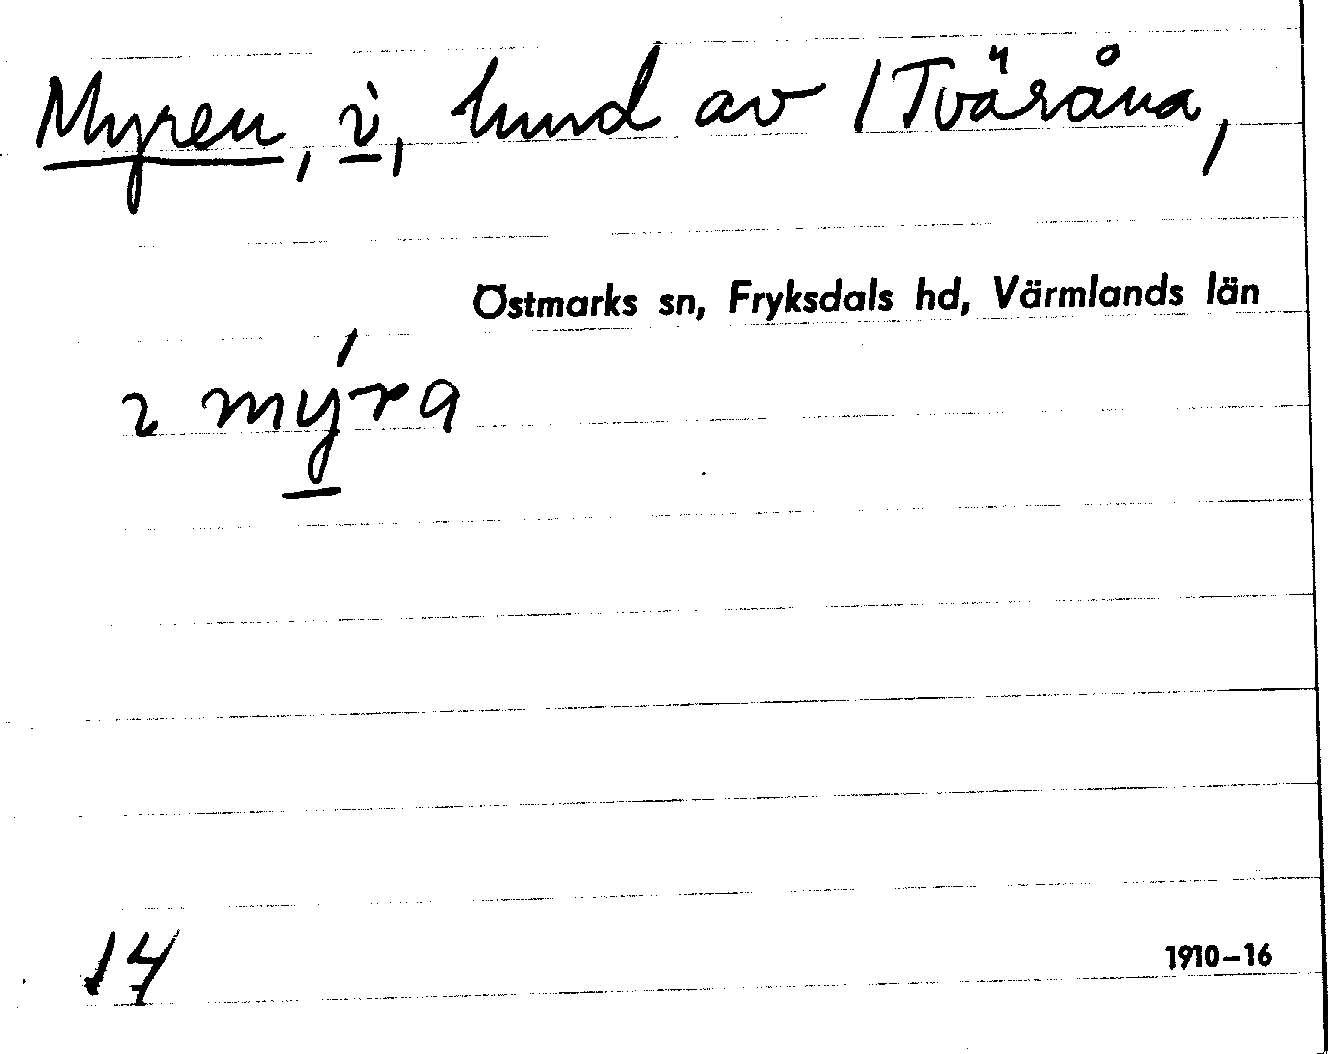 Myren, i, hmd av 1 Tväråna,
Östmarks sn, Fryksdals hd, Värmlands län
ı mýra
17
1910-16